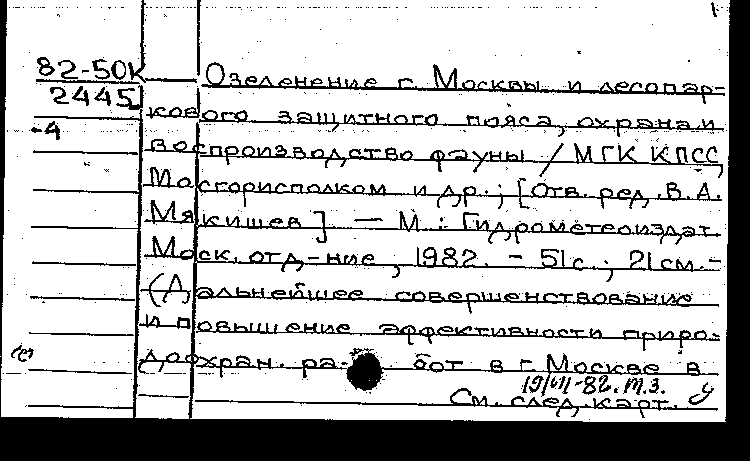 82-50К Озеленение г. Москвы и лесопар-
2445 кового защитного пояса, охрана и
-4
воспроизводство фауны / МГК КПСС,
Мосгорисполком и др.; [Отв. ред. В.А.
Мякишев]. — М.: Гидрометеоиздат.
Моск. отд-ние, 1982. - 51 с.; 21 см.-
(Дальнейшее совершенствование
и повышение эффективности приро-
доохран. работ в г. Москве в
См. след. карт.